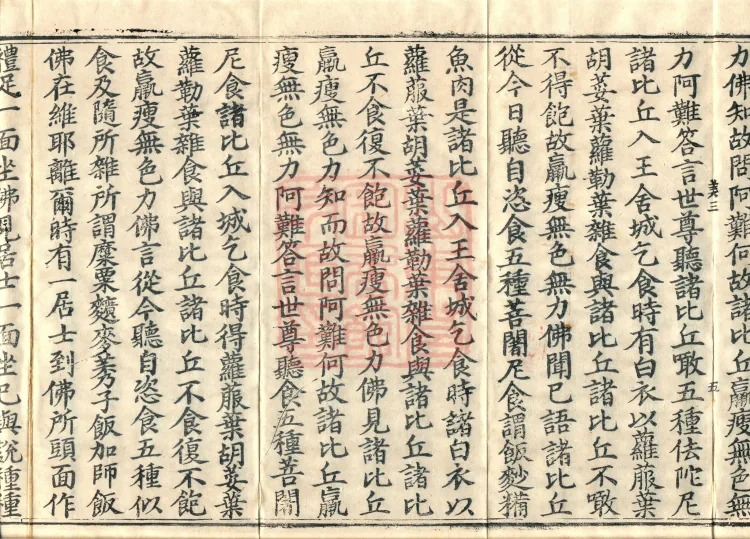 力佛知故問阿難何故諸比丘羸瘦無色無
力阿難答言世尊聽諸比丘噉五種佉陀尼
諸比丘入王舍城乞食時有白衣以蘿菔葉
胡荽葉蘿勒葉雜食與諸比丘諸比丘不噉
不得飽故羸瘦無色無力佛聞已語諸比丘
從今日聽自恣食五種蒲闍尼食謂飯麨糒
魚肉是諸比丘入王舍城乞食時諸白衣以
蘿菔葉胡荽葉蘿勒葉雜食與諸比丘諸比
丘不食復不飽故羸瘦無色力佛見諸比丘
羸瘦無色力知而故問阿難何故諸比丘羸
瘦無色無力阿難答言世尊聽食五種蒲闍
尼食諸比丘入城乞食時得蘿菔葉胡荽葉
蘿勒葉雜食與諸比丘諸比丘不食復不飽
故羸瘦無色力佛言從今聽自恣食五種似
食及隨所雜所謂糜粟穬麥莠子飯加師飯
佛在維耶離爾時有一居士到佛所頭面作
禮足一面坐佛見居士一面坐已與說種種